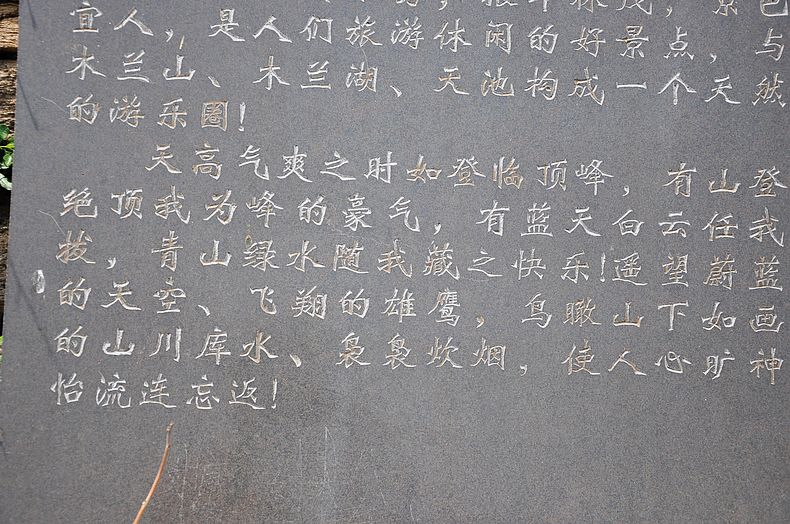 宜人，是人们旅游休闲的好景点，与
木兰山、木兰湖、天池构成一个天然
的游乐圈！
天高气爽之时如登临顶峰，有山登
绝顶我为峰的豪气，有蓝天白云任我
拔，青山绿水随我藏之快乐！遥望蔚蓝
的天空、飞翔的雄鹰，鸟瞰山下如画
的山川库水、袅袅炊烟，使人心旷神
怡流连忘返！